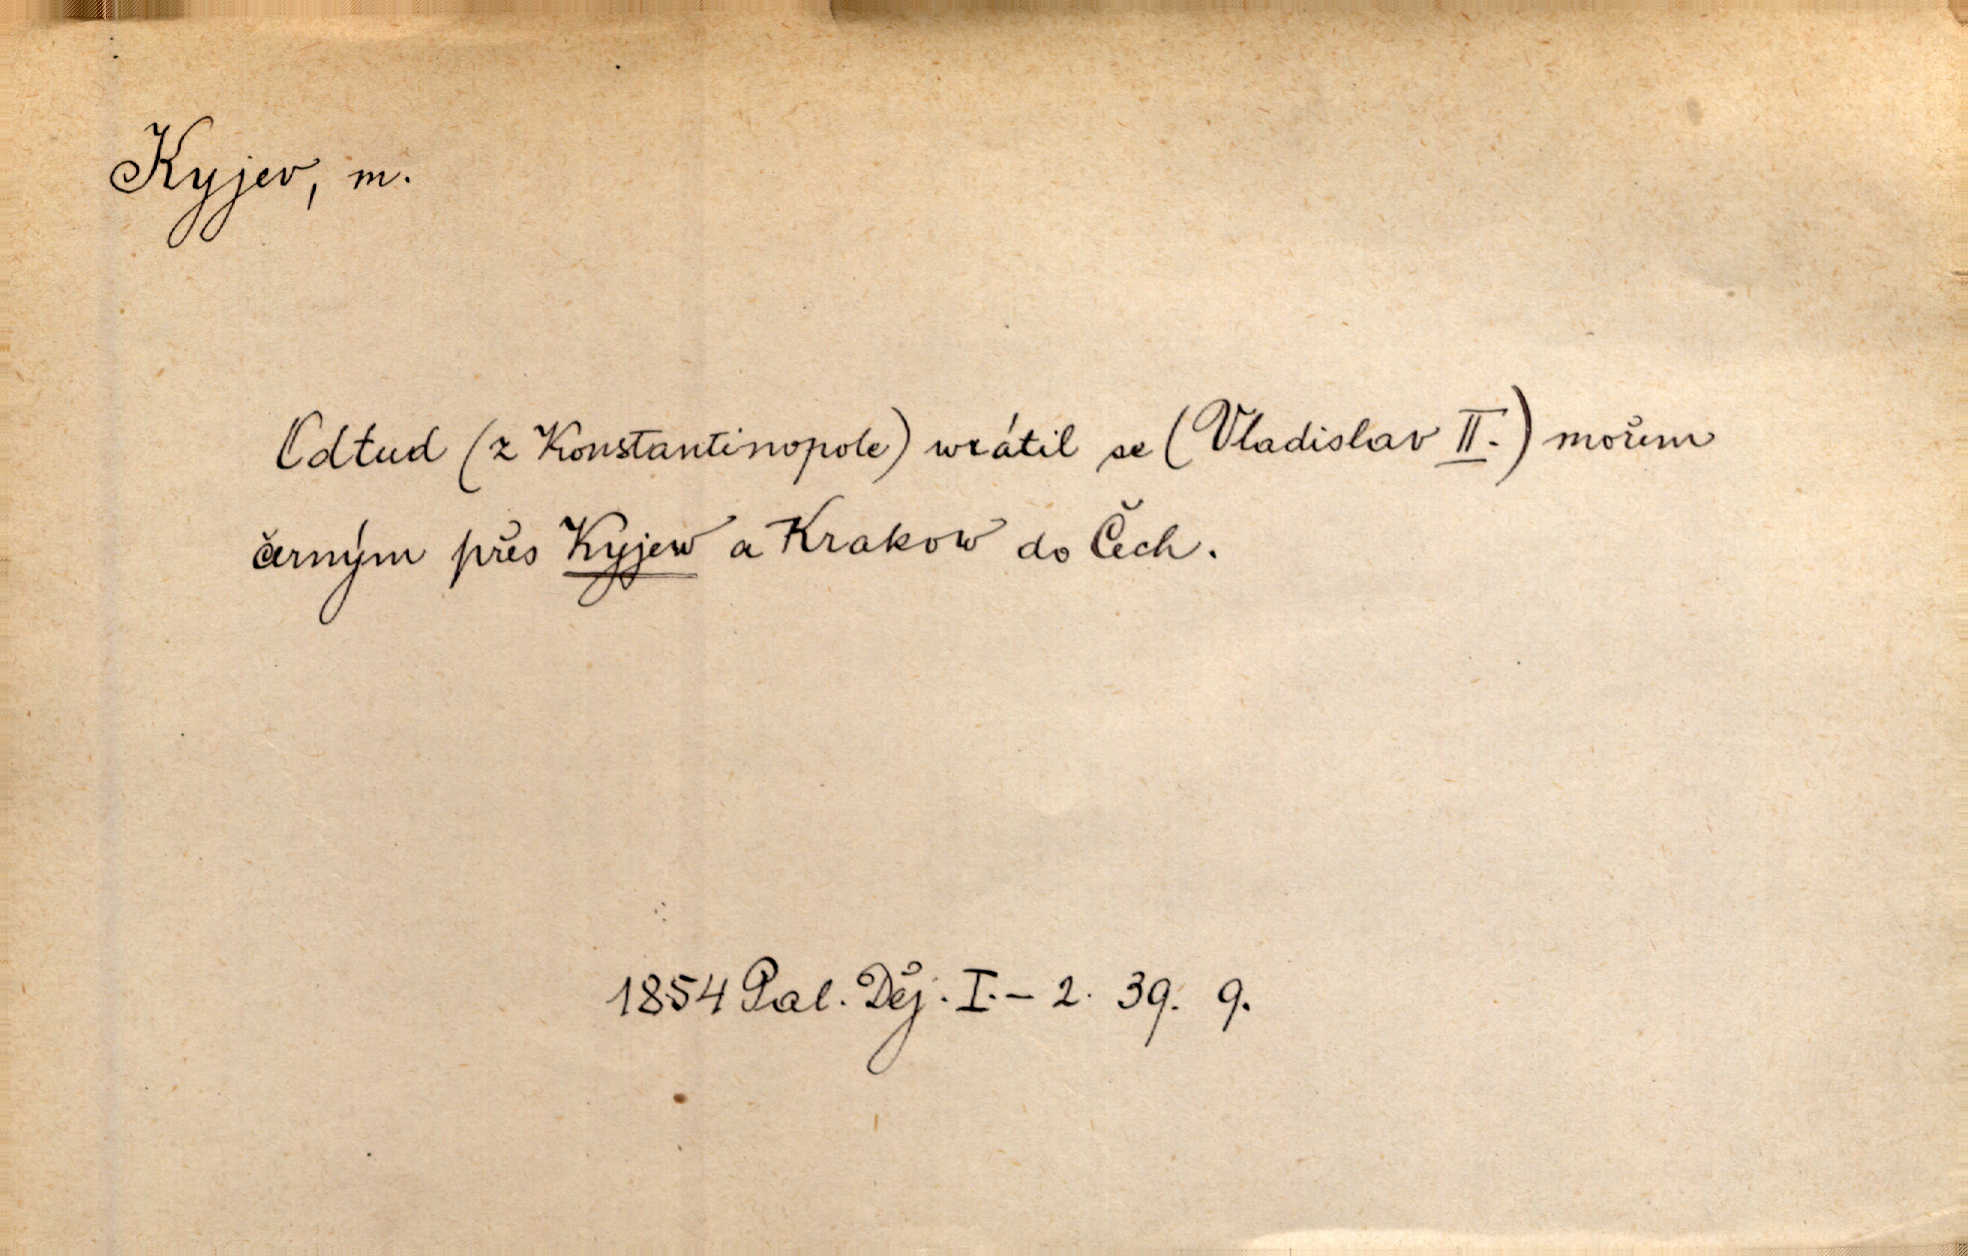 Kyjev, m.
Odtud (z Konstantinopole) wrátil se (Vladislav II.) mořem
černým přes Kyjew a Krakow do Čech.
1854 Pal. Děj. I.- 2. 39. 9.